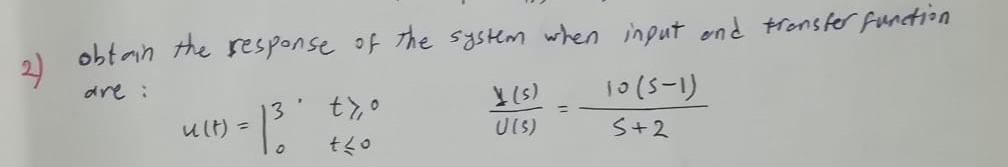 2) obtain the response of the system when input and transfer function
are :
u(t) = | 3 t ≥ 0
0 t ≤ 0
Y(s) / U(s) = 10(s-1) / s+2